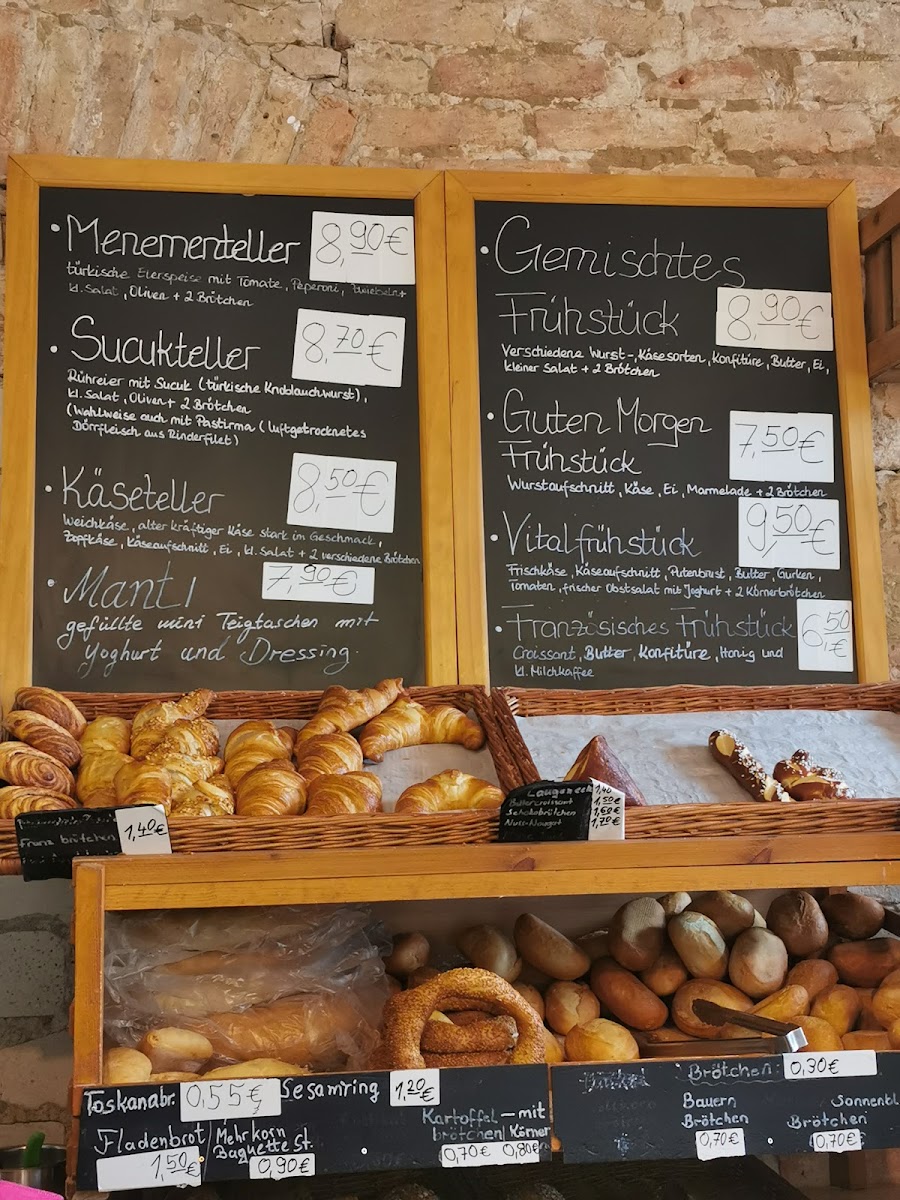 Menementeller 8,90€
türkische Eierspeise mit Tomate, Peperoni, Zwiebeln+
kl. Salat, Oliven + 2 Brötchen
Sucukteller 8,70€
Rühreier mit Sucuk (türkische Knoblauchwurst),
kl. Salat, Oliven + 2 Brötchen
(Wahlweise auch mit Pastirma (luftgetrocknetes
Dörrfleisch aus Rinderfilet)
Käseteller 8,50€
Weichkäse, alter kräftiger Käse stark im Geschmack,
Zopfkäse, Käseaufschnitt, Ei, kl. Salat + 2 verschiedene Brötchen
Manti 7,90€
gefüllte mini Teigtaschen mit
Yoghurt und Dressing.
Gemischtes
Frühstück 8,90€
Verschiedene Wurst-, Käsesorten, Konfitüre, Butter, Ei,
kleiner Salat + 2 Brötchen
Guten Morgen
Frühstück 7,50€
Wurstaufschnitt, Käse, Ei, Marmelade + 2 Brötchen
Vitalfrühstück 9,50€
Frischkäse, Käseaufschnitt, Putenbrust, Butter, Gurken,
Tomaten, frischer Obstsalat mit Joghurt + 2 Körnerbrötchen
Französisches Frühstück 6,50€
Croissant, Butter, Konfitüre, Honig und
kl. Milchkaffee
Franzbrötchen 1,40€
1,40
Buttercroissant 1,50€
Schokobrötchen 1,60€
Nuss-Nougat 1,70€
Toskanabr. 0,55€
Sesamring 1,20€
Fladenbrot 1,50€
Mehrkorn
Baguette St.
0,90€
Kartoffel – mit
brötchen Körner
0,70€ 0,80€
Brötchen: 0,30€
Bauern
Brötchen
0,70€
Sonnenbl
Brötchen
0,70€